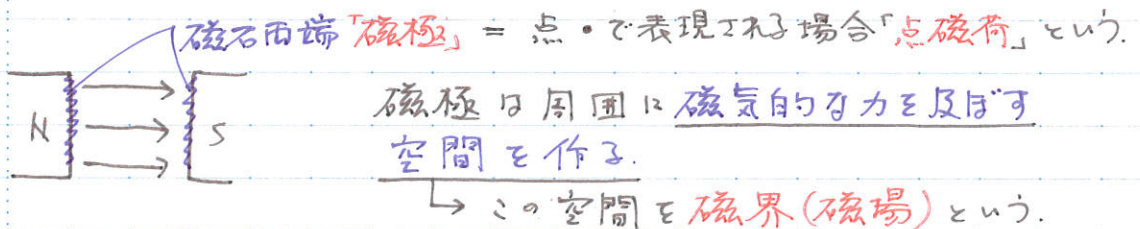 磁石両端「磁極」 = 点 • で表現される場合「点磁荷」という.
N → S
磁極は周囲に磁気的な力を及ぼす
空間を作る.
↳ この空間を磁界(磁場)という.